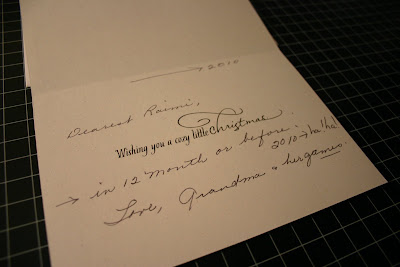 → 2010
Dearest Raimi,
Wishing you a cozy little Christmas
→ in 12 Month or before.
2010 → ha! ha!
Love, Grandma & her games.